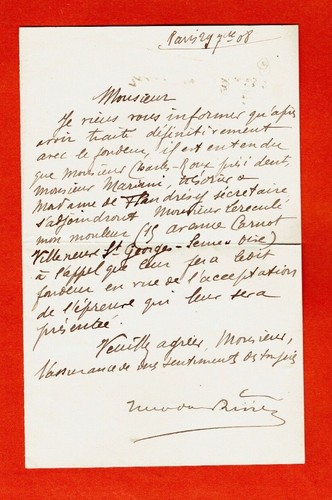 Paris 29 7bre 08
Monsieur
Je viens vous informer qu'après
avoir traité définitivement
avec le fondeur, il est entendu
que Monsieur Charles-Roux président
Monsieur Mariani, trésorier &
Madame de Flandreysy secrétaire
s'adjoindront Monsieur Lereculé
mon mouleur (15 avenue Carnot
Villeneuve St Georges - Seine & Oise)
à l'appel que leur fera ledit
fondeur en vue de l'acceptation
de l'épreuve qui leur sera
présentée.
Veuillez agréer, Monsieur,
l'assurance de mes sentiments